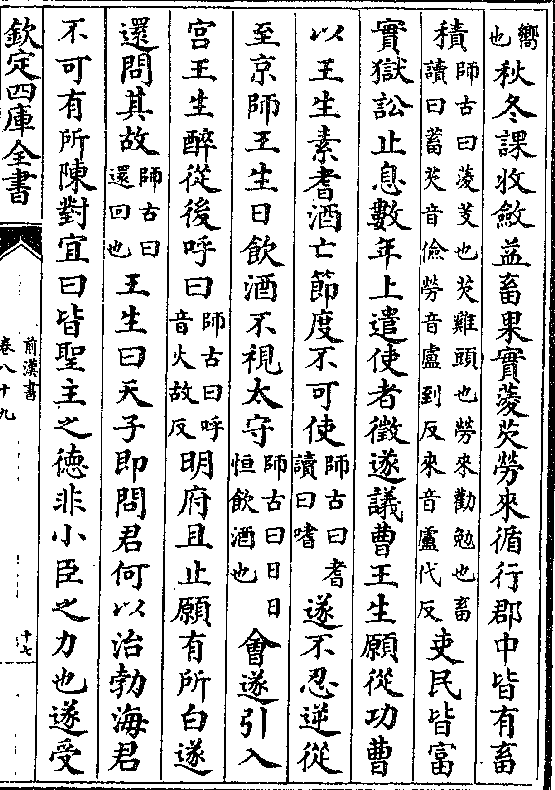 嚮也秋冬課收斂益畜果實蔆芡勞來循行郡中皆有畜
積師古曰蔆芰也芡雞頭也勞來勸勉也畜讀曰蓄芡音儉勞音盧到反來音盧代反吏民皆富
實獄訟止息數年上遣使者徵遂議曹王生願從功曹
以王生素耆酒亡節度不可使師古曰耆讀曰嗜遂不忍逆從
至京師王生日飲酒不視太守師古曰日日恒飲酒也會遂引入
宮王生醉從後呼曰師古曰呼音火故反明府且止願有所白遂
還問其故師古曰還回也王生曰天子即問君何以治勃海君
不可有所陳對宜曰皆聖主之德非小臣之力也遂受
欽定四庫全書
前漢書
卷八十九
十七